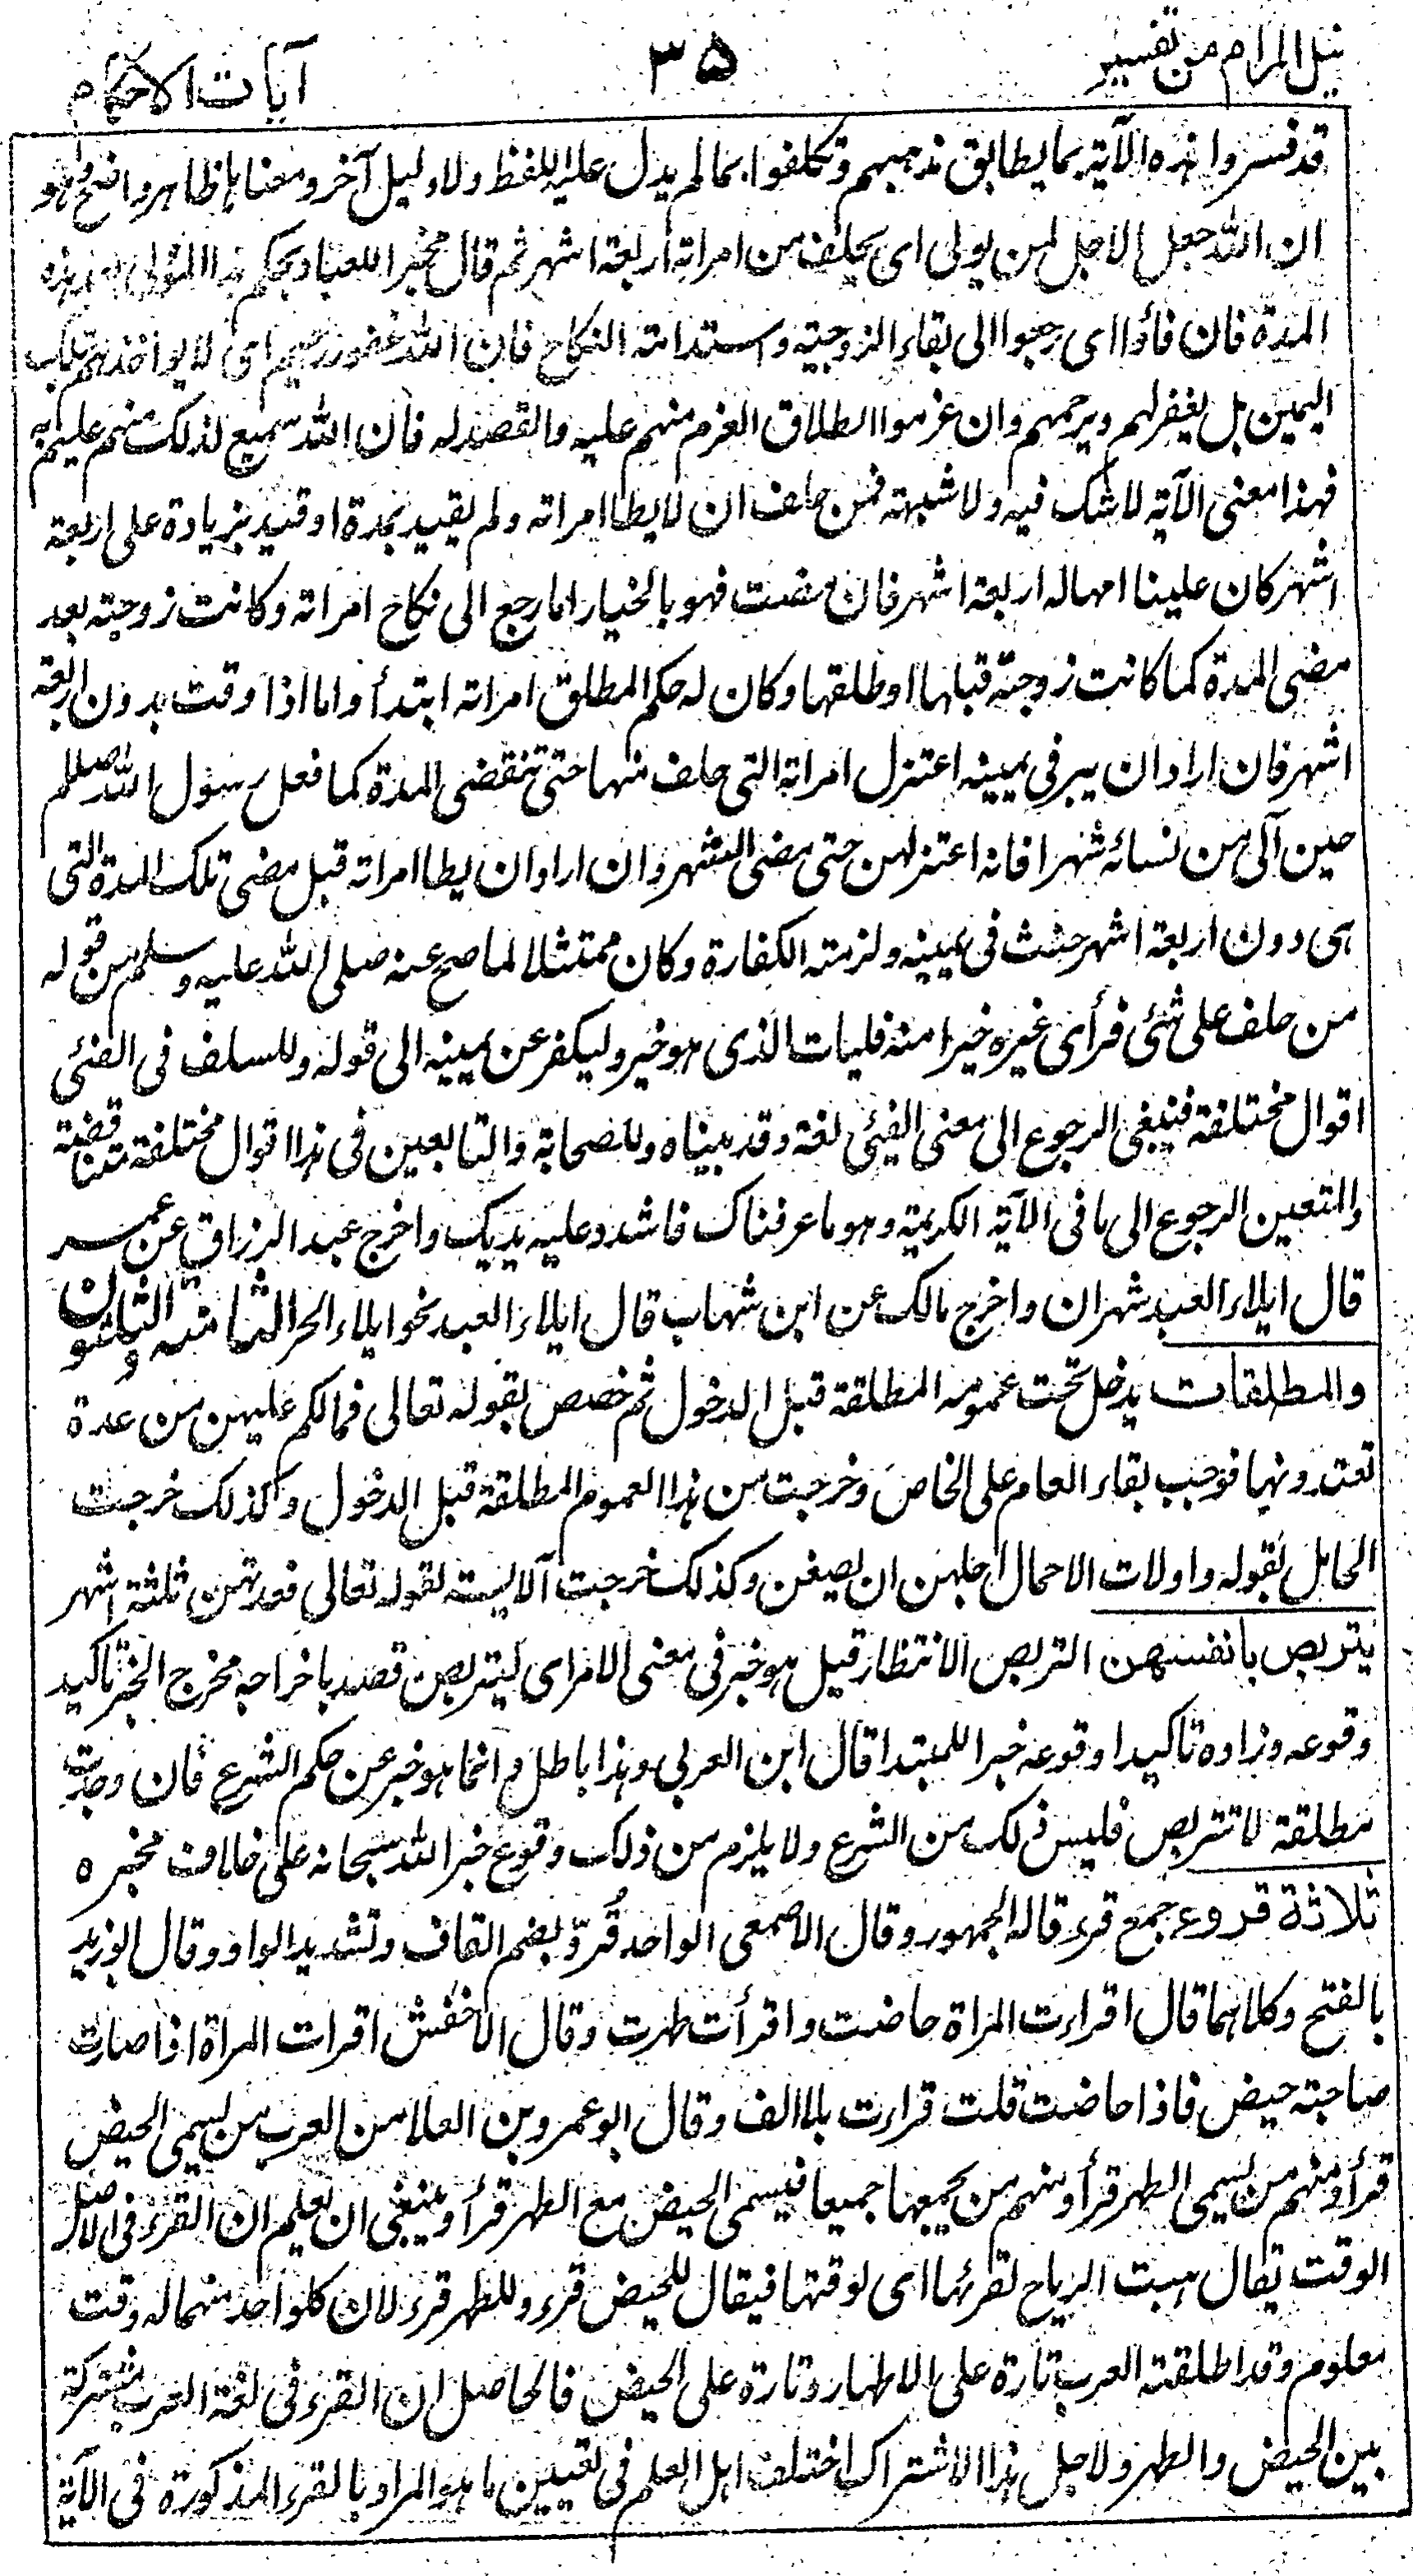 نيل المرام من تفسير
٣٥
آيات الاحكام
قد فسروا هذه الآية بما يطابق مذهبهم وتكلفوا بما لم يدل عليه اللفظ ولا دليل آخر ومعناها ظاهر واضح وهو
ان الله جعل الاجل لمن يولى اى يحلف من امراته اربعة اشهر ثم قال مخبرا لعباده بحكم هذا المولى بعد هذه
المدة فان فأوا اى رجعوا الى بقاء الزوجية واستدامة النكاح فان الله غفور رحيم اى لا يواخذهم بتلك
اليمين بل يغفر لهم ويرحمهم وان عزموا الطلاق العزم منهم عليه والقصد له فان الله سميع لذلك منهم عليم به
فهذا معنى الآية لا شك فيه ولا شبهة فمن حلف ان لا يطا امراته ولم يقيد بمدة او قيد بزيادة على اربعة
اشهر كان علينا امهاله اربعة اشهر فان مضت فهو بالخيار اما رجع الى نكاح امراته وكانت زوجته بعد
مضى المدة كما كانت زوجته قبلها او طلقها وكان له حكم المطلق امراته ابتدأ واما اذا وقت بدون اربعة
اشهر فان اراد ان يبر فى يمينه اعتزل امراته التى حلف منها حتى تنقضى المدة كما فعل رسول الله صللم
حين آلى من نسائه شهرا فانه اعتزلهن حتى مضى الشهر وان اراد ان يطا امراته قبل مضى تلك المدة التى
هى دون اربعة اشهر حنث فى يمينه ولزمته الكفارة وكان ممتثلا لما صح عنه صلى الله عليه وسلم من قوله
من حلف على شئى فرأى غيره خيرا منه فليات الذى هو خير وليكفر عن يمينه الى قوله وللسلف فى الفئى
اقوال مختلفة فينبغى الرجوع الى معنى الفيئى لغة وقد بيناه وللصحابة والتابعين فى هذا اقوال مختلفة متناقضة
والمتعين الرجوع الى ما فى الآية الكريمة وهو ما عرفناك فاشدد عليه يديك واخرج عبد الرزاق عن عمر
قال ايلاء العبد شهران واخرج مالك عن ابن شهاب قال ايلاء العبد نحو ايلاء الحر الثامنة والثلثون
والمطلقات يدخل تحت عمومه المطلقة قبل الدخول ثم خصص بقوله تعالى فمالكم عليهن من عدة
تعتدونها فوجب بقاء العام على الخاص وخرجت من هذا العموم المطلقة قبل الدخول وكذلك خرجت
الحامل بقوله واولات الاحمال اجلهن ان يضعن وكذلك خرجت آلايسة لقوله تعالى فعدتهن ثلثة اشهر
يتربصن بانفسهن التربص الانتظار قيل هو خبر فى معنى الامر اى ليتربصن قصد باخراجه مخرج الخبر تاكيد
وقوعه وزاده تاكيدا وقوعه خبرا للمبتدا قال ابن العربى وهذا باطل وانما هو خبر عن حكم الشرع فان وجدت
مطلقة لا تتربص فليس ذلك من الشرع ولا يلزم من ذلك وقوع خبر الله سبحانه على خلاف مخبره
ثلاثة قروء جمع قرء قاله الجمهور وقال الاصمعى الواحد قُروّ بضم القاف وتشديد الواو وقال ابو زيد
بالفتح وكلاهما قال اقراءت المراة حاضت واقرأت طهرت وقال الاخفش اقرات المراة اذا صارت
صاحبة حيض فاذا حاضت قلت قراءت بلا الف وقال ابو عمرو بن العلا من العرب من يسمى الحيض
قرأ ومنهم من يسمى الطهر قرأ ومنهم من يجمعها جميعا فيسمى الحيض مع الطهر قرأ وينبغى ان يعلم ان القرء فى الاصل
الوقت يقال هبت الرياح لقرئها اى لوقتها فيقال للحيض قرء وللطهر قرء لان كلواحد منهما له وقت
معلوم وقد اطلقته العرب تارة على الاطهار وتارة على الحيض فالحاصل ان القرء فى لغة العرب مشتركة
بين الحيض والطهر ولاجل هذا الاشتراك اختلف اهل العلم فى تعيين ما هو المراد بالقرء المذكورة فى الآية